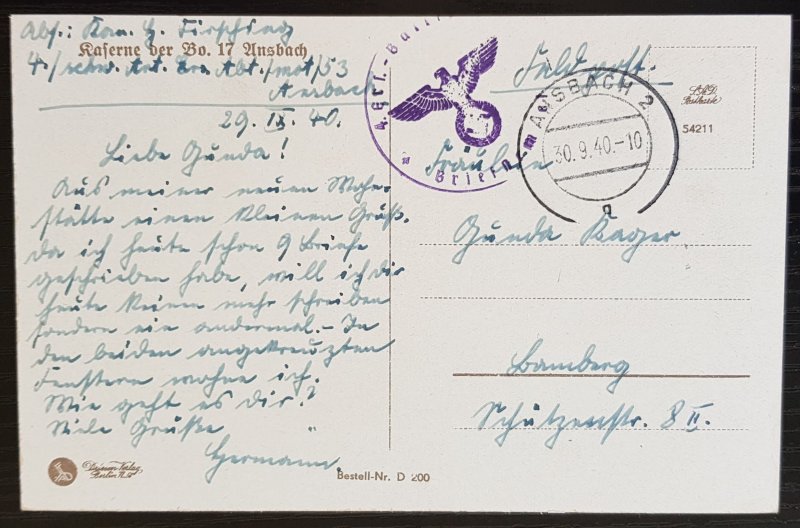 Abs.: Kan. H. Firsching
Kaserne der Bo. 17 Ansbach
4./schw. Art. Ers. Abt./mot/53
Ansbach
29. IX. 40.
Liebe Gunda!
Aus meiner neuen Wohn-
stätte einen kleinen Gruß.
da ich heute schon 9 Briefe
geschrieben habe, will ich dir
heute keinen mehr schreiben
sondern ein andermal.- In
den beiden angekreuzten
Fenstern wohne ich.
Wie geht es dir?
Viele Grüße
Hermann.
Feldpost.
ANSBACH 2
30.9.40.-10
a
Briefst
Postkarte
54211
Fräulein
Gunda Kager
Bamberg
Schützenstr. 8 II.
Berlin
Bestell-Nr. D 200